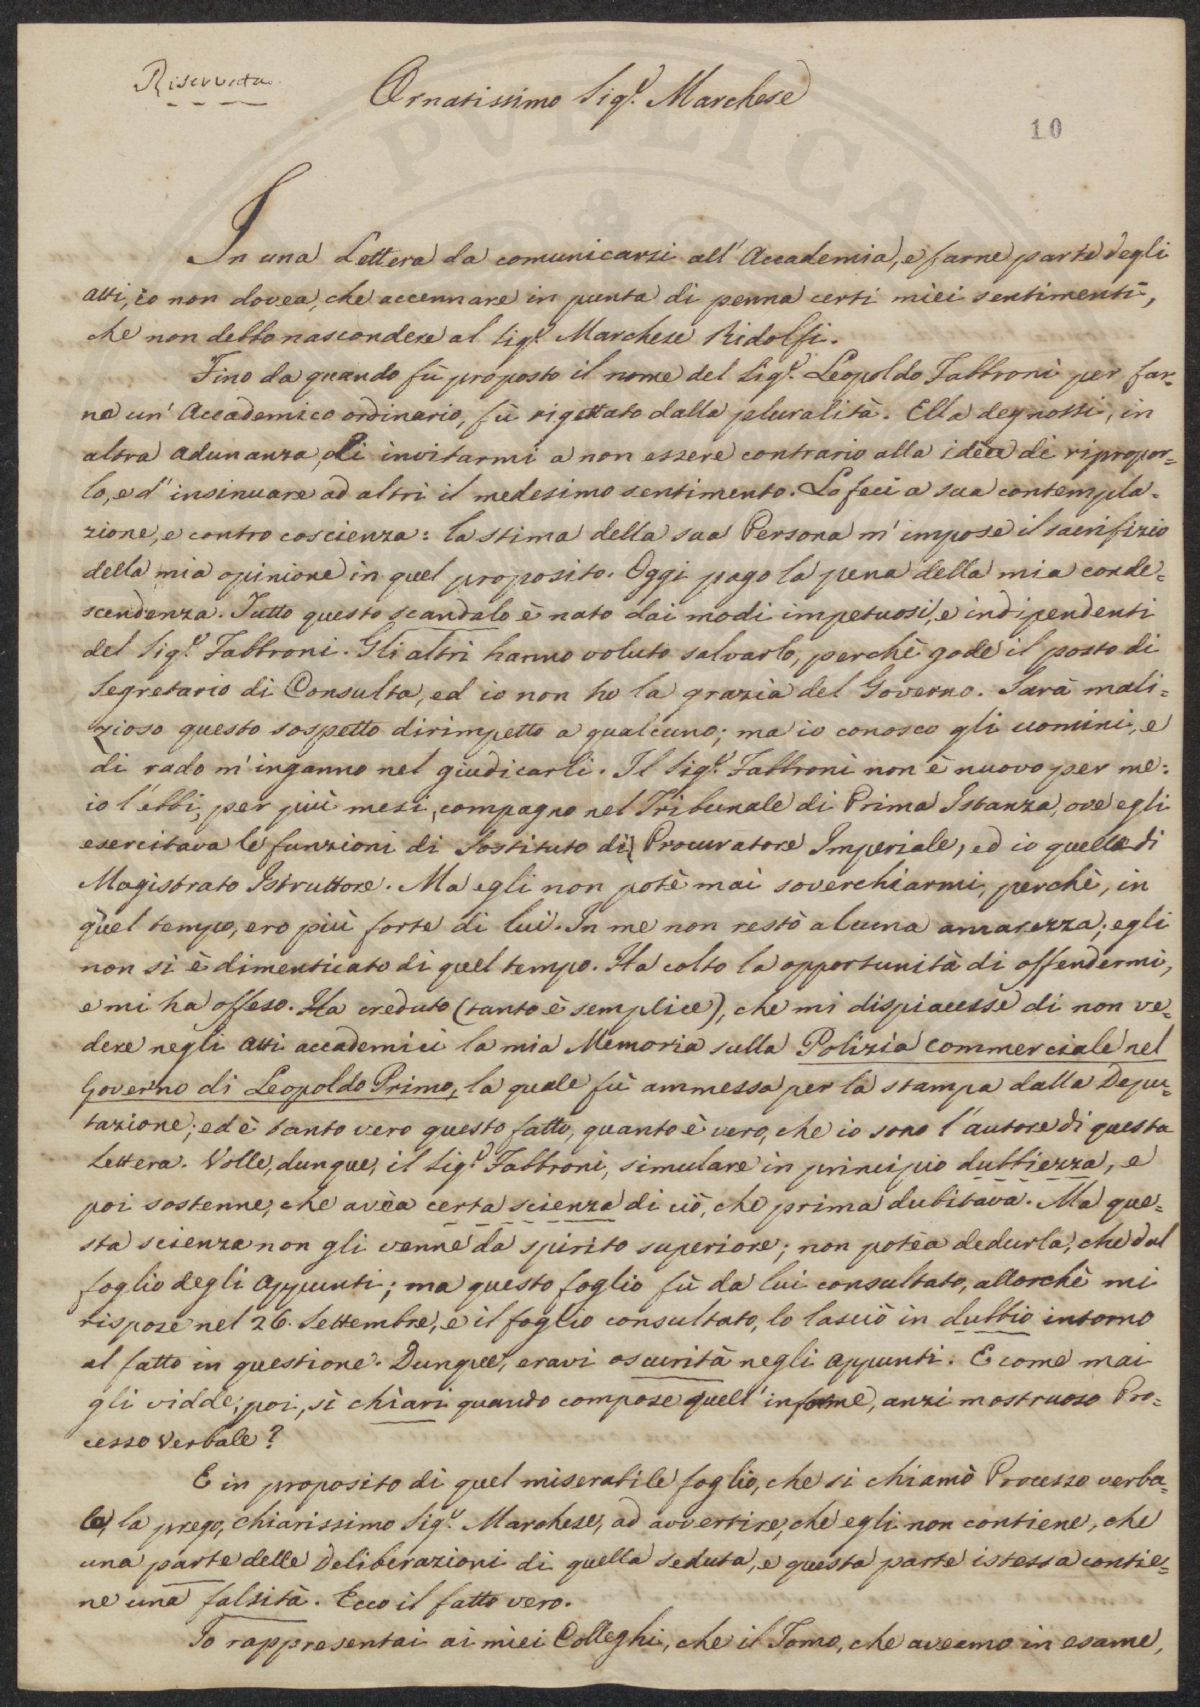 Riservata
Ornatissimo Sigr. Marchese
10
In una Lettera da comunicarsi all'Accademia, e farne parte degli
atti, io non dovea, che accennare in punta di penna certi miei sentimenti,
che non debbo nascondere al Sigr. Marchese Ridolfi.
Fino da quando fù proposto il nome del Sigr. Leopoldo Fabbroni per far-
ne un'Accademico ordinario, fù rigettato dalla pluralità. Ella degnossi, in
altra adunanza, di invitarmi a non essere contrario alla idea di ripropor-
lo, e d'insinuare ad altri il medesimo sentimento. Lo feci a sua contempla-
zione, e contro coscienza: la stima della sua Persona m'impose il sacrifizio
della mia opinione in quel proposito. Oggi pago la pena della mia conde-
scendenza. Tutto questo scandalo è nato dai modi impetuosi, e indipendenti
del Sigr. Fabbroni. Gli altri hanno voluto salvarlo, perchè gode il posto di
Segretario di Consulta, ed io non ho la grazia del Governo. Sarà mali-
zioso questo sospetto dirimpetto a qualcuno; ma io conosco gli uomini, e
di rado m'inganno nel giudicarli. Il Sigr. Fabbroni non è nuovo per me:
io l'ebbi, per più mesi, compagno nel Tribunale di Prima Istanza, ove egli
esercitava le funzioni di Sostituto di Procuratore Imperiale, ed io quelle di
Magistrato Istruttore. Ma egli non potè mai soverchiarmi, perchè, in
quel tempo, ero più forte di lui. In me non restò alcuna amarezza; egli
non si è dimenticato di quel tempo. Ha colto la opportunità di offendermi,
e mi ha offeso. Ha creduto (tanto è semplice), che mi dispiacesse di non ve-
dere negli atti accademici la mia Memoria sulla Polizia commerciale nel
Governo di Leopoldo Primo, la quale fù ammessa per la stampa dalla Depu-
tazione; ed è tanto vero questo fatto, quanto è vero, che io sono l'autore di questa
Lettera. Volle, dunque, il Sigr. Fabbroni, simulare in principio dubbiezza, e
poi sostenne, che avèa certa scienza di ciò, che prima dubitava. Ma que-
sta scienza non gli venne da spirito superiore; non potèa dedurla, che dal
foglio degli Appunti; ma questo foglio fù da lui consultato, allorchè mi
rispose nel 26. Settembre, e il foglio consultato, lo lasciò in dubbio intorno
al fatto in questione. Dunque, eravi oscurità negli Appunti. E come mai
gli vidde, poi, sì chiari quando compose quell'informe, anzi mostruoso Pro-
cesso Verbale?
E in proposito di quel miserabile foglio, che si chiamò Processo verba-
le, la prego, chiarissimo Sigr. Marchese, ad avvertire, che egli non contiene, che
una parte delle Deliberazioni di quella seduta, e questa parte istessa contie-
ne una falsità. Ecco il fatto vero.
Io rappresentai ai miei Colleghi, che il Tomo, che aveamo in esame,